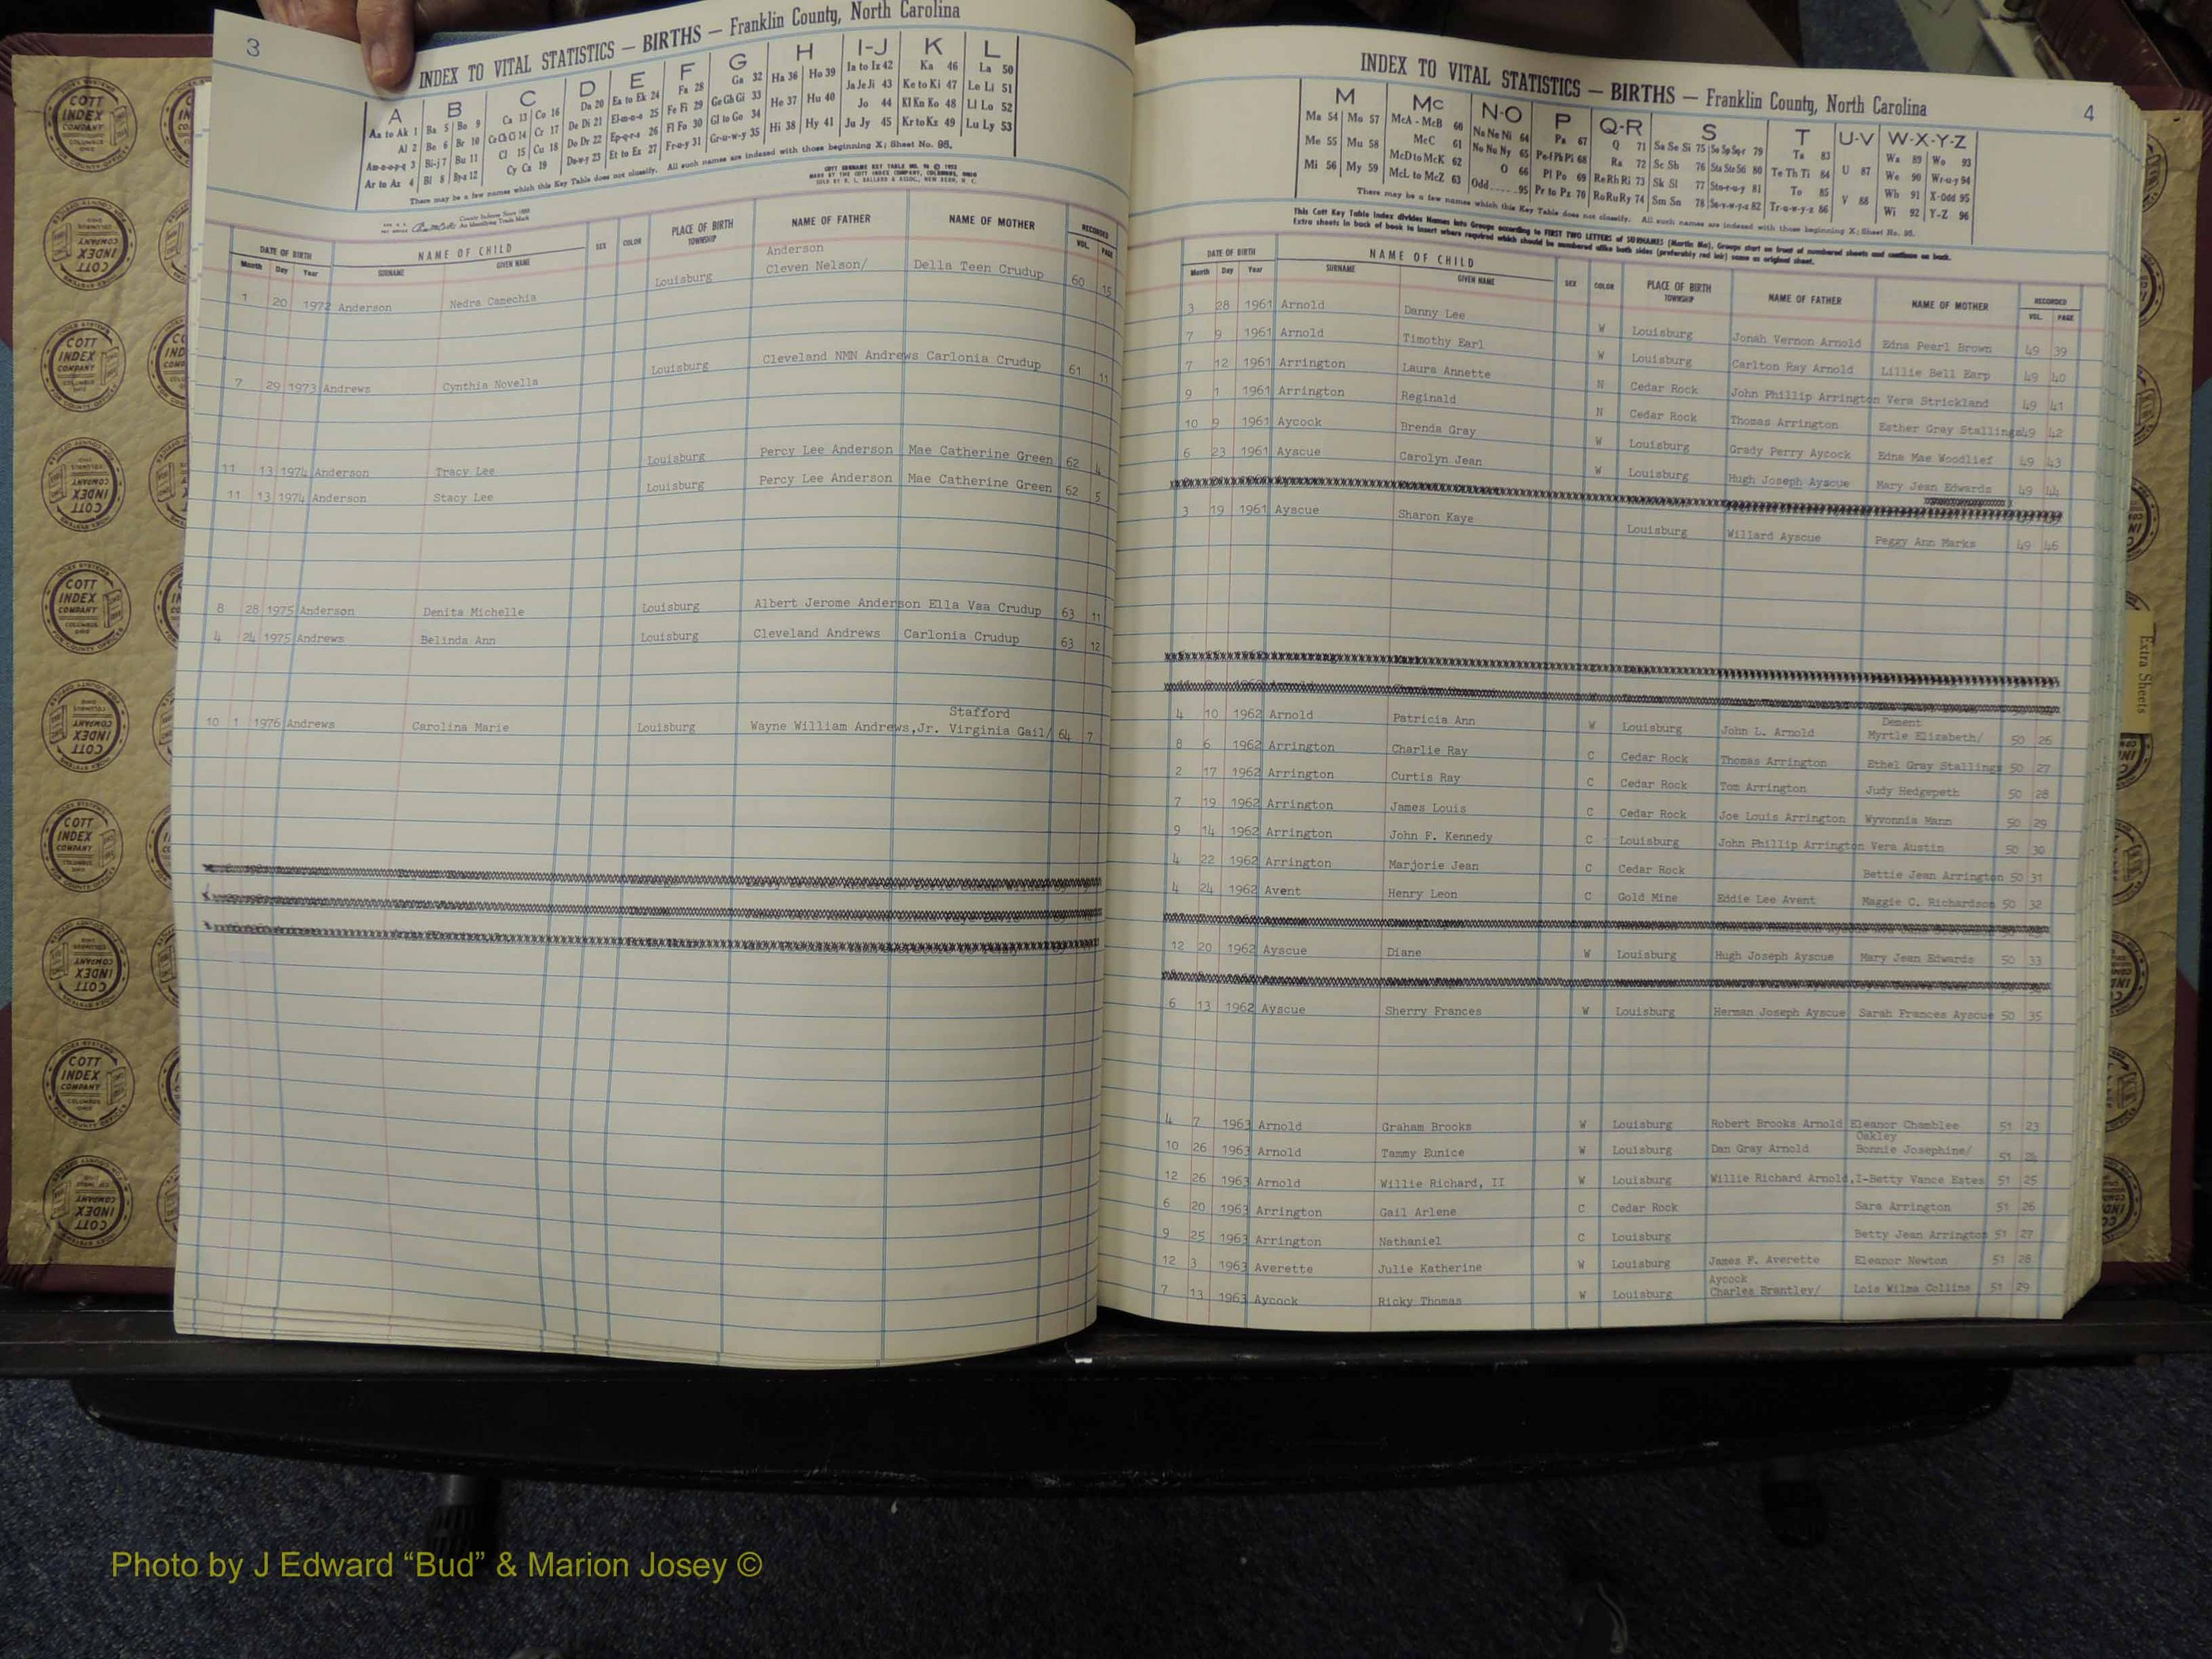 3
INDEX TO VITAL STATISTICS — BIRTHS — Franklin County, North Carolina
A B C D E F G H I-J K L
Aa to Ak 1 Ba 5 Bo 9 Ca 13 Co 16 Da 20 Ea to Ek 24 Fa 28 Ga 32 Ha 36 Ho 39 Ia to Iz 42 Ka 46 La 50
Al 2 Be 6 Br 10 Ce Ch Ci 14 Cr 17 De Di 21 El-m-n-o 25 Fe Fi 29 Ge Gh Gi 33 He 37 Hu 40 Ja Je Ji 43 Ke to Ki 47 Le Li 51
Am-n-o-p-q 3 Bi-j 7 Bu 11 Cl 15 Cu 18 Do Dr 22 Ep-q-r-s 26 Fl Fo 30 Gl to Go 34 Hi 38 Hy 41 Jo 44 Kl Kn Ko 48 Ll Lo 52
Ar to Az 4 Bl 8 By-z 12 Cy Cz 19 Du-w-y 23 Et to Ez 27 Fr-u-y 31 Gr-u-w-y 35 Ju Jy 45 Kr to Kz 49 Lu Ly 53
There may be a few names which this Key Table does not classify. All such names are indexed with those beginning X; Sheet No. 95.
COTT SURNAME KEY TABLE
MADE BY THE COTT INDEX COMPANY, COLUMBUS, OHIO
SOLD BY O. L. BALLARD & ASSOC., NEW BERN, N. C.
County Indexes Since 1888
An Identifying Trade Mark
DATE OF BIRTH NAME OF CHILD SEX COLOR PLACE OF BIRTH NAME OF FATHER NAME OF MOTHER RECORDED
Month Day Year SURNAME GIVEN NAME TOWNSHIP VOL. PAGE
Anderson
1 20 1972 Anderson Nedra Camechia Louisburg Cleven Nelson/ Della Teen Crudup 60 15
7 29 1973 Andrews Cynthia Novella Louisburg Cleveland NMN Andrews Carlonia Crudup 61 11
11 13 1974 Anderson Tracy Lee Louisburg Percy Lee Anderson Mae Catherine Green 62 4
11 13 1974 Anderson Stacy Lee Louisburg Percy Lee Anderson Mae Catherine Green 62 5
8 28 1975 Anderson Denita Michelle Louisburg Albert Jerome Anderson Ella Vaa Crudup 63 11
4 24 1975 Andrews Belinda Ann Louisburg Cleveland Andrews Carlonia Crudup 63 12
Stafford
10 1 1976 Andrews Carolina Marie Louisburg Wayne William Andrews,Jr. Virginia Gail/ 64 7
INDEX TO VITAL STATISTICS — BIRTHS — Franklin County, North Carolina
4
M Mc N-O P Q-R S T U-V W-X-Y-Z
Ma 54 Mo 57 McA - McB 60 Na Ne Ni 64 Pa 67 Q 71 Sa Se Si 75 So Sp Sq-r 79 Ta 83 U 87 Wa 89 Wo 93
Me 55 Mu 58 McC 61 No Nu Ny 65 Pe-f Ph Pi 68 Ra 72 Sc Sh 76 Sta Ste Sti 80 Te Th Ti 84 V 88 We 90 Wr-u-y 94
Mi 56 My 59 McD to McK 62 O 66 Pl Po 69 Re Rh Ri 73 Sk Sl 77 Sto-r-u-y 81 To 85 Wh 91 X-Odd 95
McL to McZ 63 Odd......95 Pr to Pz 70 Ro Ru Ry 74 Sm Sn 78 Su-v-w-y-z 82 Tr-u-w-y-z 86 Wi 92 Y-Z 96
There may be a few names which this Key Table does not classify. All such names are indexed with those beginning X; Sheet No. 95.
This Cott Key Table Index divides Names into Groups according to FIRST TWO LETTERS of SURNAMES (Martin Ma). Groups start on front of numbered sheets and continue on back.
Extra sheets in back of book to insert where required which should be numbered alike both sides (preferably red ink) same as original sheet.
DATE OF BIRTH NAME OF CHILD SEX COLOR PLACE OF BIRTH NAME OF FATHER NAME OF MOTHER RECORDED
Month Day Year SURNAME GIVEN NAME TOWNSHIP VOL. PAGE
3 28 1961 Arnold Danny Lee W Louisburg Jonah Vernon Arnold Edna Pearl Brown 49 39
7 9 1961 Arnold Timothy Earl W Louisburg Carlton Ray Arnold Lillie Bell Earp 49 40
7 12 1961 Arrington Laura Annette N Cedar Rock John Phillip Arrington Vera Strickland 49 41
9 1 1961 Arrington Reginald N Cedar Rock Thomas Arrington Esther Gray Stallings 49 42
10 9 1961 Aycock Brenda Gray W Louisburg Grady Perry Aycock Edna Mae Woodlief 49 43
6 23 1961 Ayscue Carolyn Jean W Louisburg Hugh Joseph Ayscue Mary Jean Edwards 49 44
3 19 1961 Ayscue Sharon Kaye Louisburg Willard Ayscue Peggy Ann Marks 49 46
Dement
4 10 1962 Arnold Patricia Ann W Louisburg John L. Arnold Myrtle Elizabeth/ 50 26
8 6 1962 Arrington Charlie Ray C Cedar Rock Thomas Arrington Ethel Gray Stallings 50 27
2 17 1962 Arrington Curtis Ray C Cedar Rock Tom Arrington Judy Hedgepeth 50 28
7 19 1962 Arrington James Louis C Cedar Rock Joe Louis Arrington Wyvonnia Mann 50 29
9 14 1962 Arrington John F. Kennedy C Louisburg John Phillip Arrington Vera Austin 50 30
4 22 1962 Arrington Marjorie Jean C Cedar Rock Bettie Jean Arrington 50 31
4 24 1962 Avent Henry Leon C Gold Mine Eddie Lee Avent Maggie C. Richardson 50 32
12 20 1962 Ayscue Diane W Louisburg Hugh Joseph Ayscue Mary Jean Edwards 50 33
6 13 1962 Ayscue Sherry Frances W Louisburg Herman Joseph Ayscue Sarah Frances Ayscue 50 35
4 7 1963 Arnold Graham Brooks W Louisburg Robert Brooks Arnold Eleanor Chamblee 51 23
Oakley
10 26 1963 Arnold Tammy Eunice W Louisburg Dan Gray Arnold Bonnie Josephine/ 51 24
12 26 1963 Arnold Willie Richard, II W Louisburg Willie Richard Arnold,I-Betty Vance Estes 51 25
6 20 1963 Arrington Gail Arlene C Cedar Rock Sara Arrington 51 26
9 25 1963 Arrington Nathaniel C Louisburg Betty Jean Arrington 51 27
12 3 1963 Averette Julie Katherine W Louisburg James F. Averette Eleanor Newton 51 28
Aycock
7 13 1963 Aycock Ricky Thomas W Louisburg Charles Brantley/ Lois Wilma Collins 51 29
Extra Sheets
COTT INDEX COMPANY COLUMBUS OHIO
Photo by J Edward “Bud” & Marion Josey ©